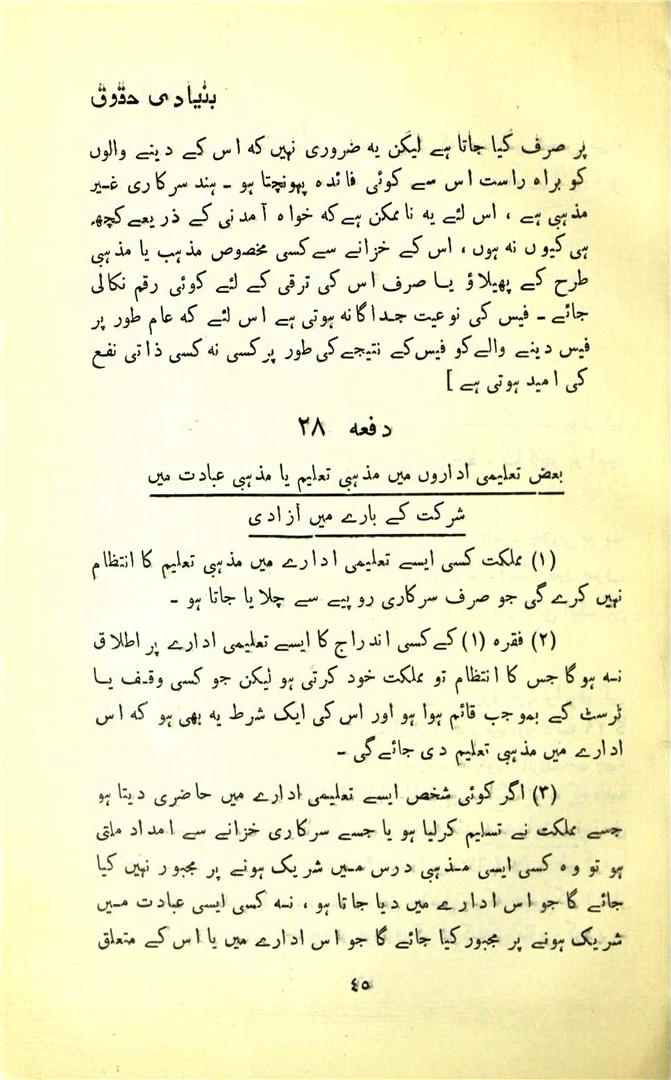 بنیادی حقوق
پر صرف کیا جاتا ہے لیکن یہ ضروری نہیں کہ اس کے دینے والوں
کو براہ راست اس سے کوئی فائدہ پہونچتا ہو ۔ ہند سرکاری غیر
مذہبی ہے ، اس لئے یہ ناممکن ہے کہ خواہ آمدنی کے ذریعے کچھ
ہی کیوں نہ ہوں ، اس کے خزانے سے کسی مخصوص مذہب یا مذہبی
طرح کے پھیلاؤ یا صرف اس کی ترقی کے لئے کوئی رقم نکالی
جائے ۔ فیس کی نوعیت جداگانہ ہوتی ہے اس لئے کہ عام طور پر
فیس دینے والے کو فیس کے نتیجے کی طور پر کسی نہ کسی ذاتی نفع
کی امید ہوتی ہے ]
دفعہ ۲۸
بعض تعلیمی اداروں میں مذہبی تعلیم یا مذہبی عبادت میں
شرکت کے بارے میں آزادی
(۱) مملکت کسی ایسے تعلیمی ادارے میں مذہبی تعلیم کا انتظام
نہیں کرے گی جو صرف سرکاری روپیے سے چلایا جاتا ہو ۔
(۲) فقرہ (۱) کے کسی اندراج کا ایسے تعلیمی ادارے پر اطلاق
نہ ہوگا جس کا انتظام تو مملکت خود کرتی ہو لیکن جو کسی وقف یا
ٹرسٹ کے بموجب قائم ہوا ہو اور اس کی ایک شرط یہ بھی ہو کہ اس
ادارے میں مذہبی تعلیم دی جائے گی ۔
(۳) اگر کوئی شخص ایسے تعلیمی ادارے میں حاضری دیتا ہو
جسے مملکت نے تسلیم کرلیا ہو یا جسے سرکاری خزانے سے امداد ملتی
ہو تو وہ کسی ایسی مذہبی درس میں شریک ہونے پر مجبور نہیں کیا
جائے گا جو اس ادارے میں دیا جاتا ہو ، نہ کسی ایسی عبادت میں
شریک ہونے پر مجبور کیا جائے گا جو اس ادارے میں یا اس کے متعلق
٤٥